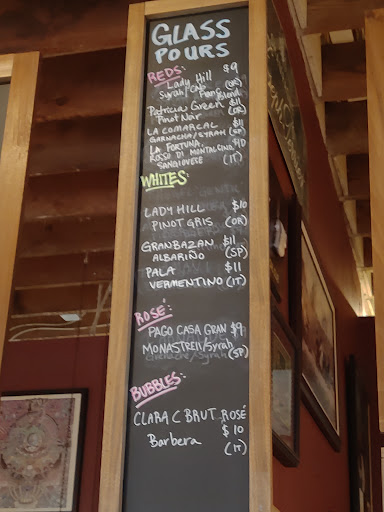 GLASS
POURS
REDS:
Lady Hill $9
Syrah/Cab Franc Blend (OR)
Patricia Green $11
Pinot Noir (OR)
LA COMARCAL $11
GARNACHA/SYRAH (SP)
LA FORTUNA,
ROSSO DI MONTALCINO $10
SANGIOVESE (IT)
WHITES:
LADY HILL $10
PINOT GRIS (OR)
GRANBAZAN $11
ALBARIÑO (SP)
PALA $11
VERMENTINO (IT)
ROSÉ:
PAGO CASA GRAN $9
MONASTRELL/Syrah (SP)
BUBBLES:
CLARA C BRUT ROSÉ
$10
Barbera (IT)